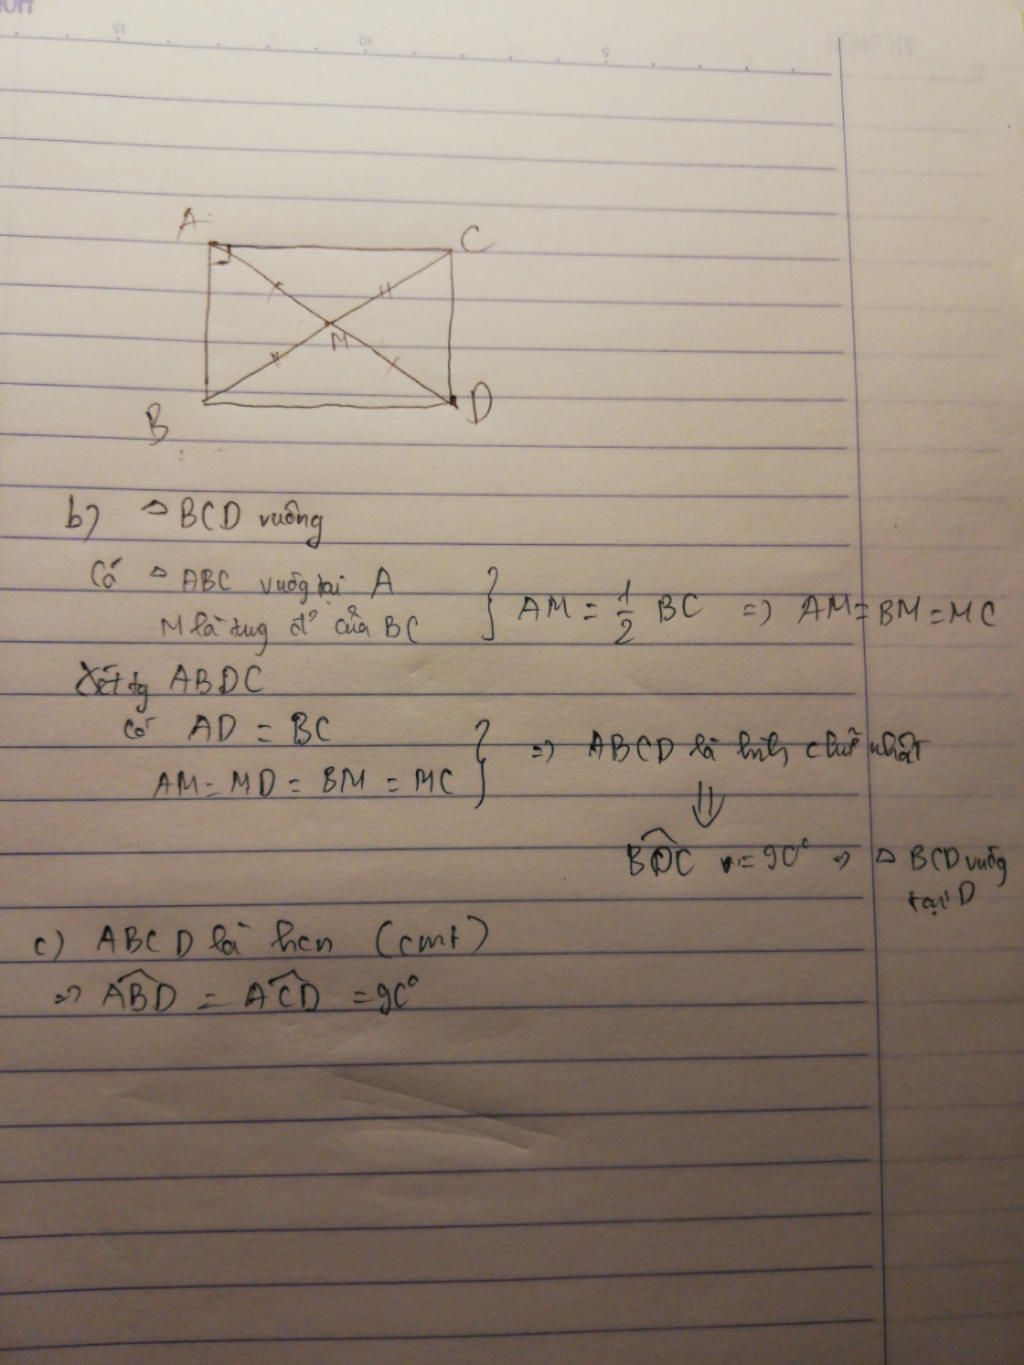 15 10 5
A C
M
B D
b) △ BCD vuông
Có △ ABC vuông tại A
M là trung đ' của BC } AM = 1/2 BC => AM = BM = MC
Xét tg ABDC
có AD = BC
AM = MD = BM = MC } => ABCD là hình chữ nhật
⇓
BDC = 90° => △ BCD vuông
tại D
c) ABCD là hcn (cmt)
=> ABD = ACD = 90°